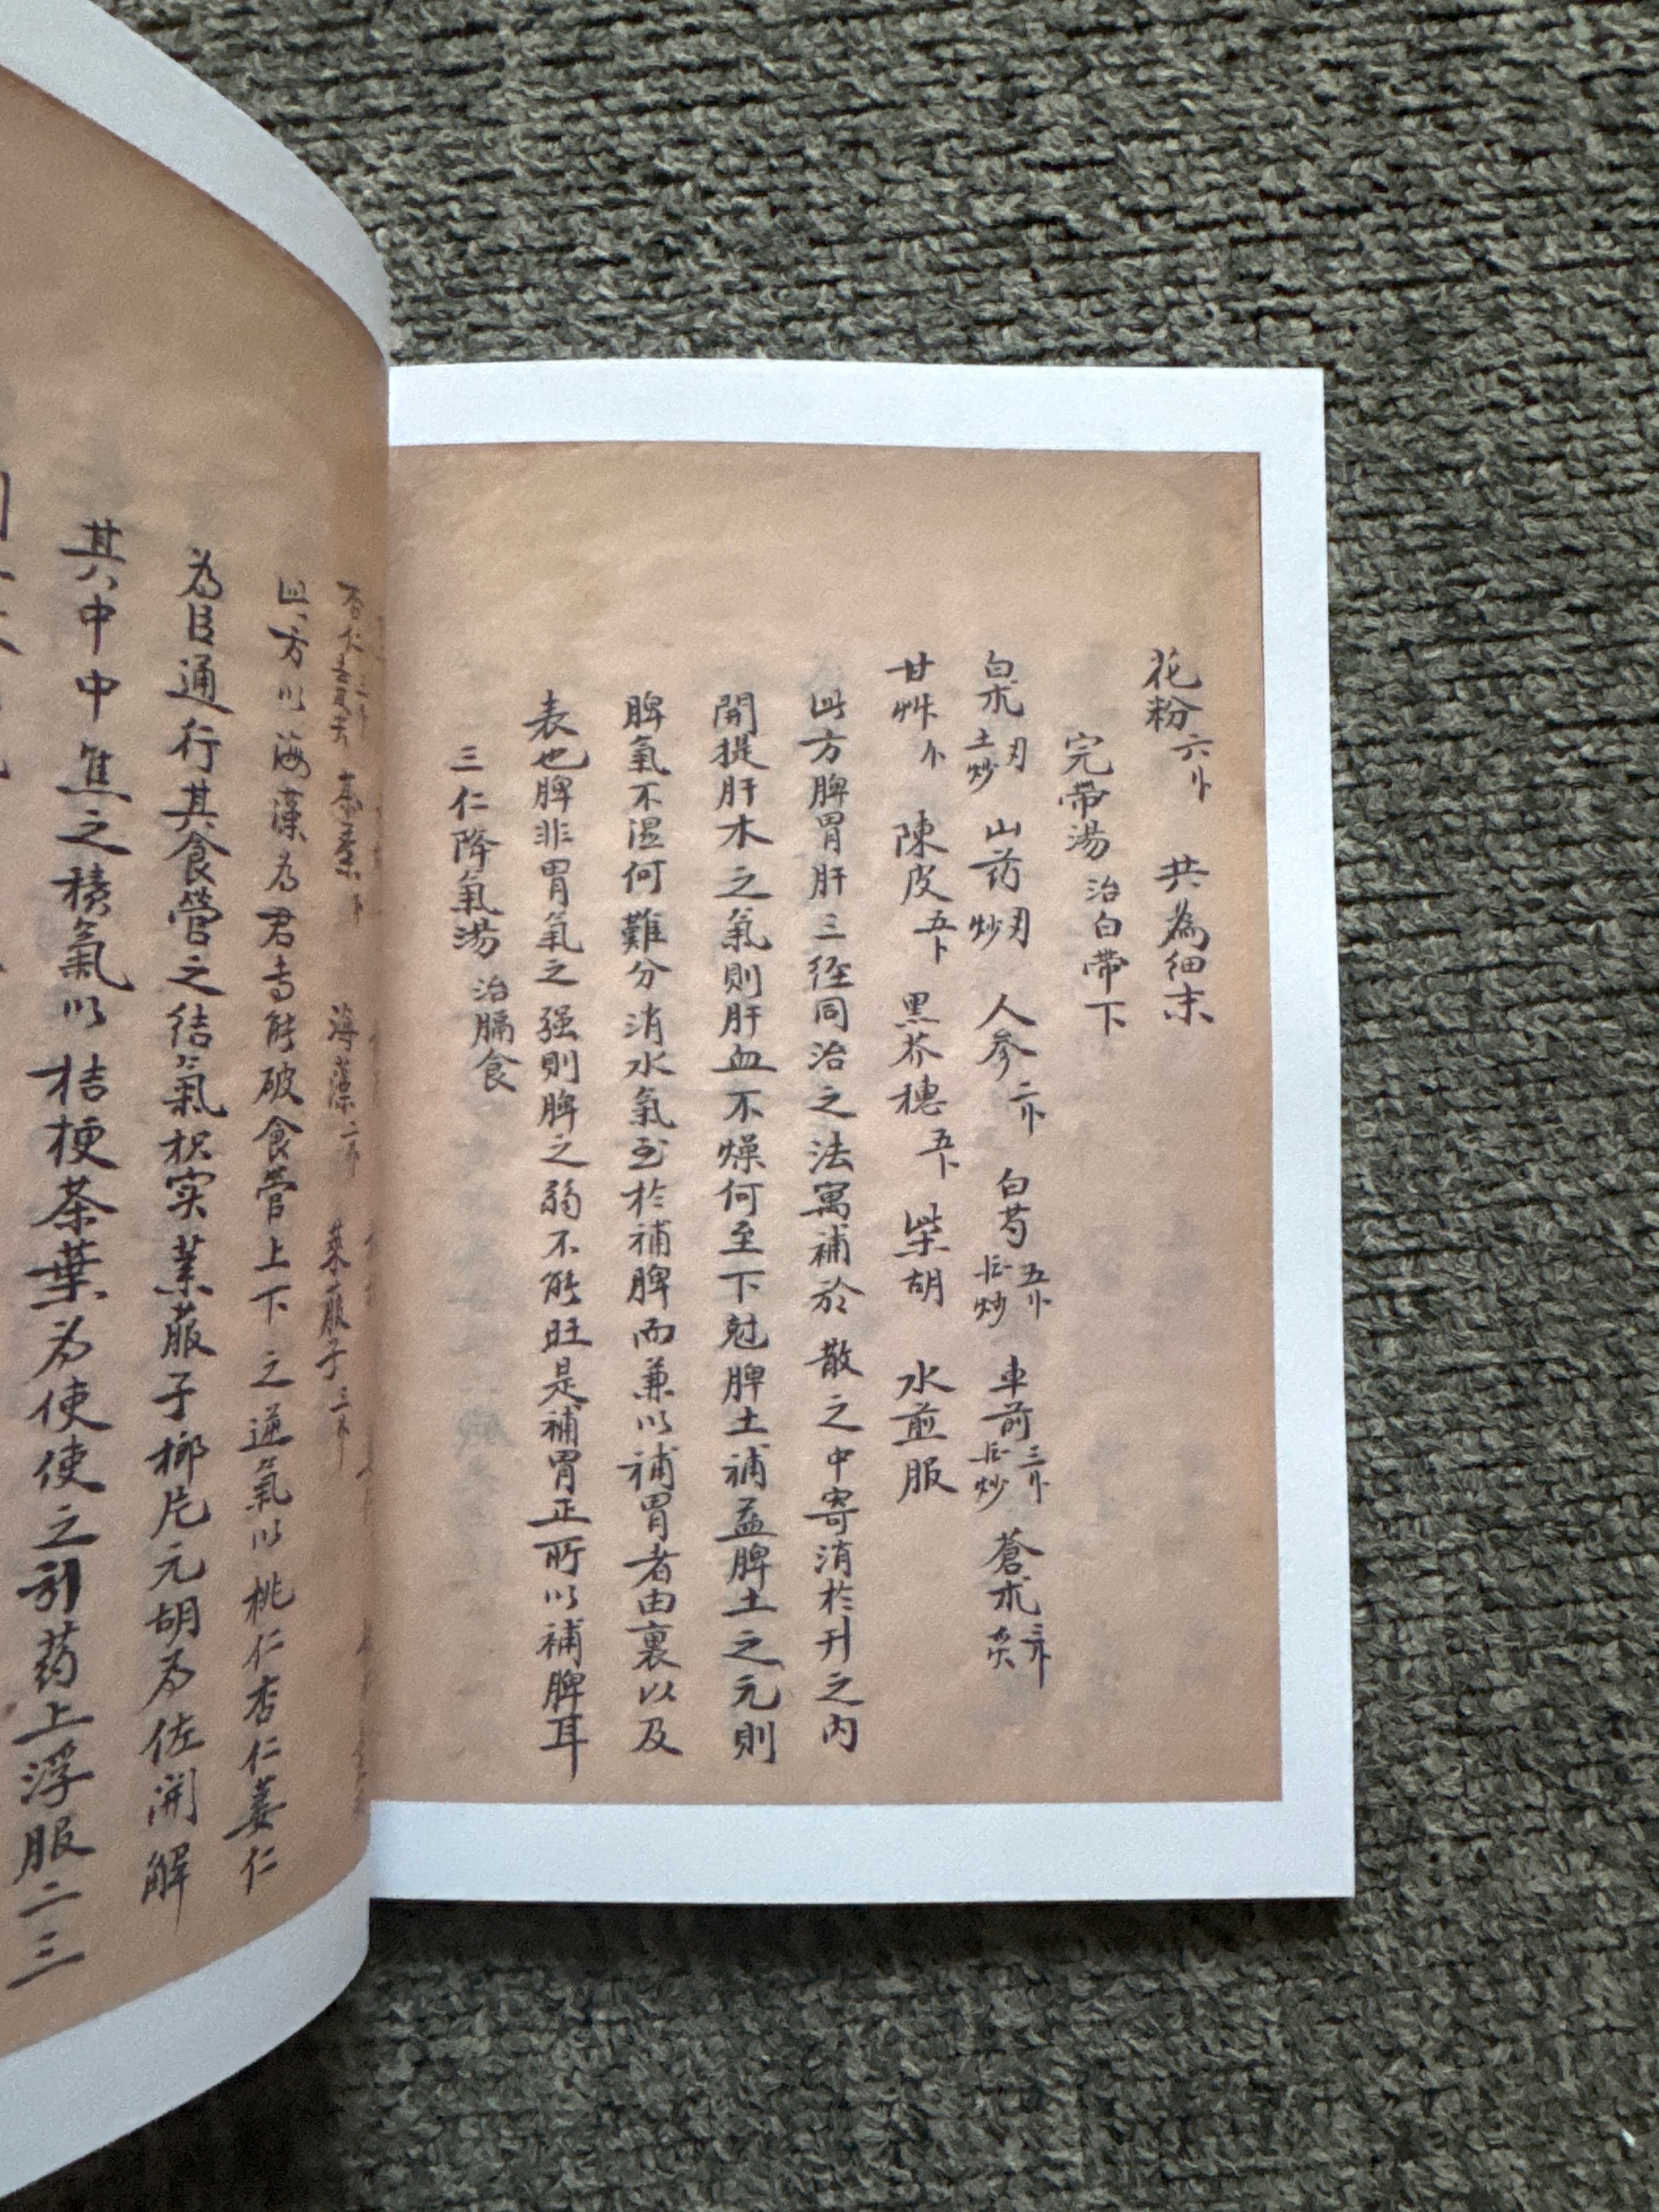 花粉六卜　共為細末
完帶湯 治白帶下
白朮 土炒 山药 炒 人參二卜 白芍 五卜 炒 車前 三卜 炒 蒼朮 三卜
甘艸卜 陳皮五卜 黑芥穗五卜 柴胡 水煎服
此方脾胃肝三经同治之法寓補於散之中寄消於升之內
開提肝木之氣則肝血不燥何至下尅脾土補益脾土之元則
脾氣不湿何難分消水氣至於補脾而兼以補胃者由裏以及
表也脾非胃氣之强則脾之弱不能旺是補胃正所以補脾耳
三仁降氣湯 治膈食
海藻二卜 莱菔子三卜
此方以海藻為君专能破食管上下之逆氣以桃仁杏仁蒌仁
为臣通行其食管之结氣枳实莱菔子榔片元胡为佐開解
其中中焦之積氣以桔梗茶葉为使使之引药上浮服二三